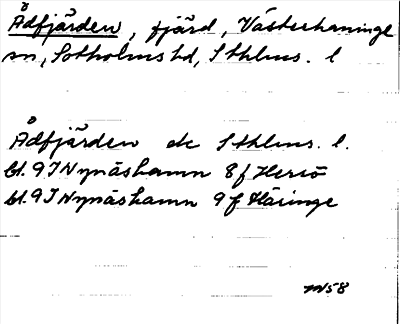 Ådfjärden, fjärd, Västerhaninge
sn, Sotholms hd, Sthlms. l
Ådfjärden etc Sthlms. l.
bl. 9I Nynäshamn 8f Herrö
bl. 9I Nynäshamn 9f Häringe